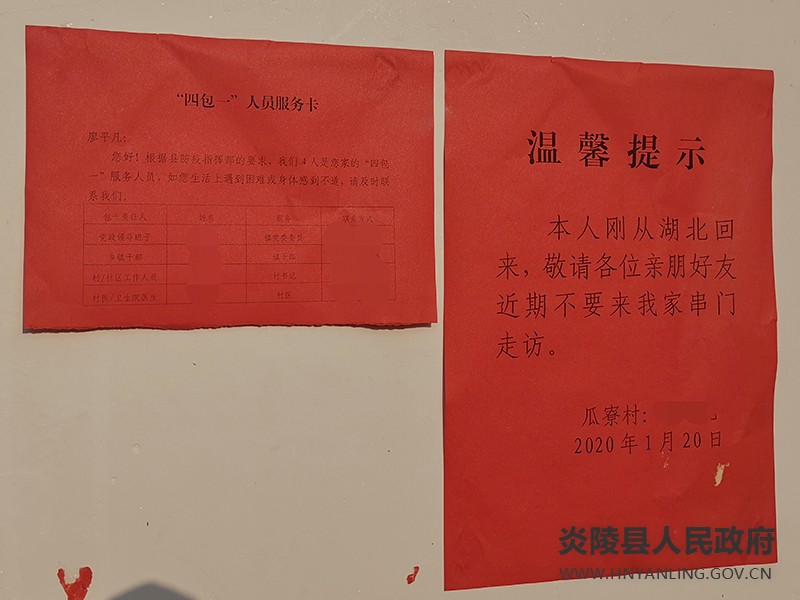 “四包一”人员服务卡
廖平凡:
您好!根据县防疫指挥部的要求,我们4人是您家的“四包
一”服务人员,如您生活上遇到困难或身体感到不适,请及时联
系我们。
包一责任人 姓名 职务 联系方式
党政领导班子 镇党委委员
乡镇干部 镇干部
村/社区工作人员 村书记
村医/卫生院医生 村医
温馨提示
本人刚从湖北回
来,敬请各位亲朋好友
近期不要来我家串门
走访。
瓜寮村:
2020年1月20日
炎陵县人民政府
WWW.HNYANLING.GOV.CN